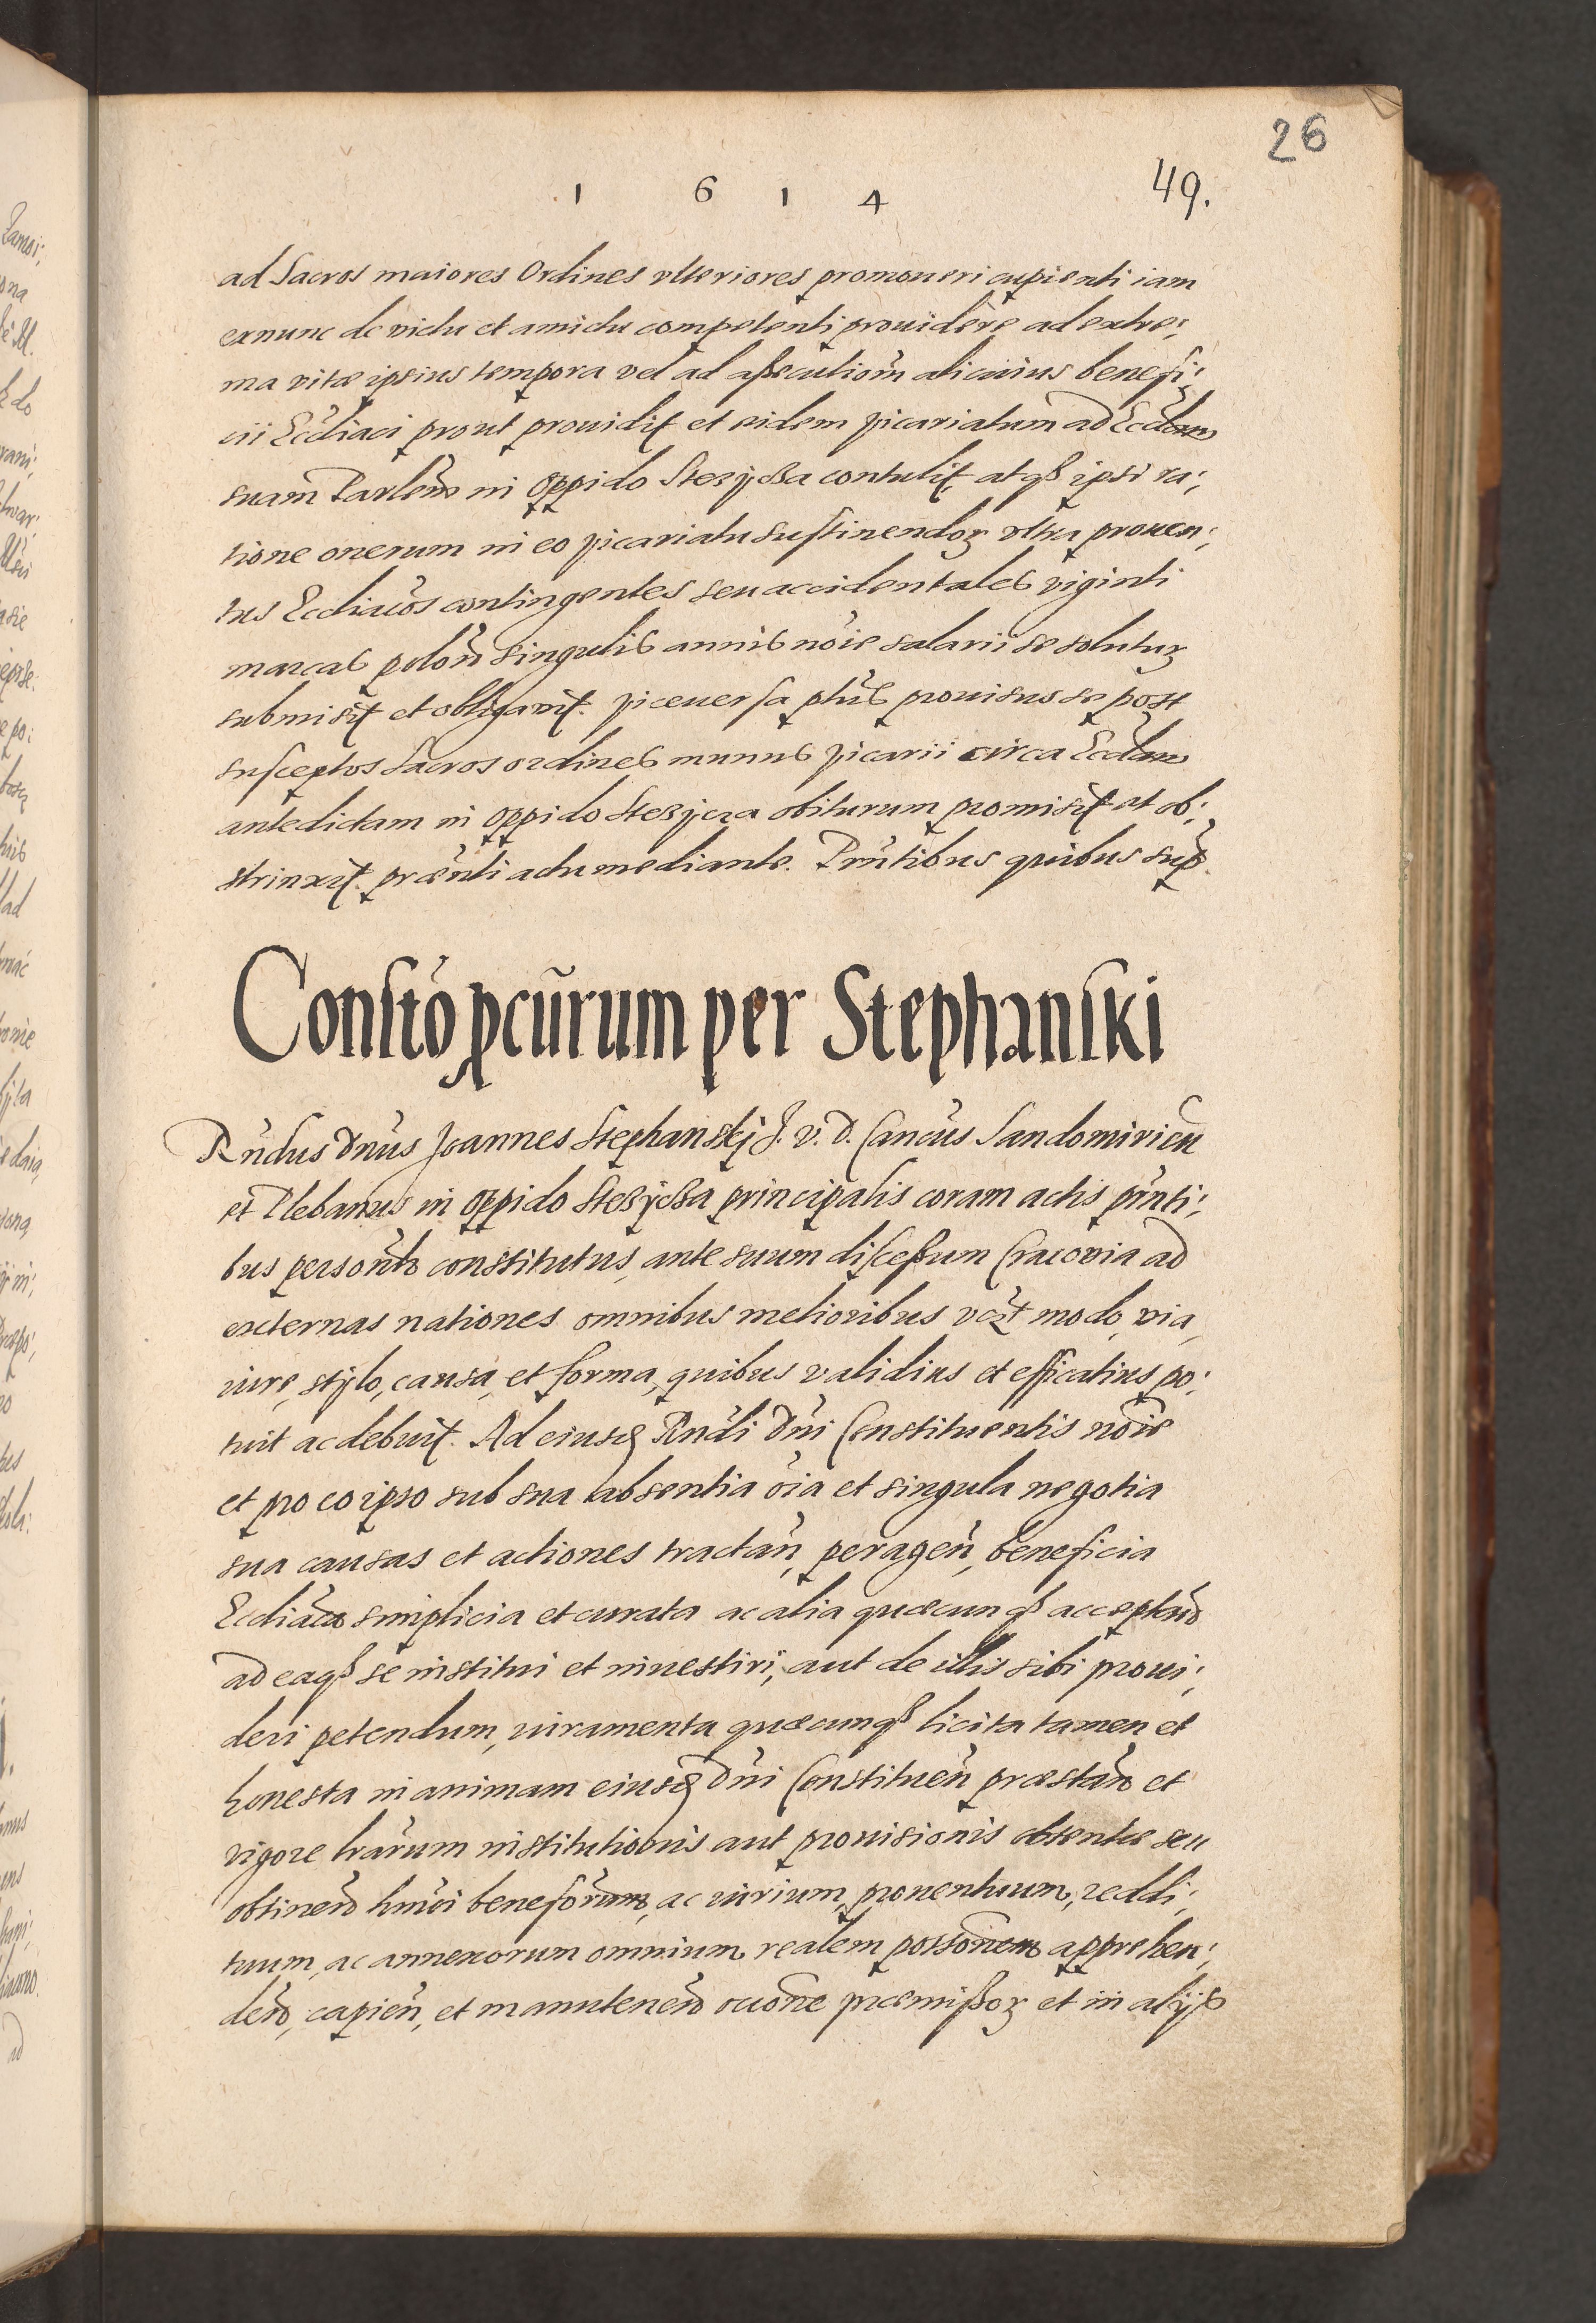 26
1 6 1 4 49.
ad Sacros maiores Ordines vlteriores promoueri cupienti iam
exnunc de victu et amictu competenti prouidere ad extre;
ma vitæ ipsius tempora vel ad aßecutioñ alicuius benefi;
cii Eccłiaci prout prouidit et eidem vicariatum ad Eccłam
suam Parłem in oppido Stezycza contulit atqß ipsi ra;
tione onerum in eo vicariatu sustinendoꝝ vltra prouen;
tus Eccłiacos contingentes seu accidentales viginti
marcas poloñ singulis annis noĩe salarii se solutuꝝ
submisit et obligauit. viceuersa pñs prouisus se post
susceptos Sacros ordines munus vicarii circa Eccłam
antedictam in oppido Stezycza obiturum promisit et ob;
strinxit. præñti actu mediante. Pñtibus quibus sup̃.
Constõ pcũrum per Stephanski
Rñdus Dñus Joannes Stephanskj J. V. D. Cancũs Sandomirieñ
et Plebanus in oppido Stezycza principalis coram actis pñti;
bus personłr constitutus, ante suum discessum Cracouia ad
externas nationes omnibus melioribus modo, via,
iure, stylo, causa, et forma, quibus validius et efficatius po;
tuit ac debuit. Ad eiusđ Rñdi Dñi Constituentis noĩe
et pro eo ipso sub sua absentia oĩa et singula negotia
sua causas et actiones tractañ, perageñ, beneficia
Eccłiaca simplicia et curata ac alia quæcunqß acceptañ
ad eaqß se institui et inuestiri, aut de illis sibi proui;
deri petendum, iuramenta quæcunqß licita tamen et
honesta in animam eiusđ Dñi Constitueñ præstañ et
vigore lrãrum institutionis aut prouisionis obtentæ seu
obtineñ hmõi benefõrum, ac iurium, prouentuum, reddi;
tuum, ac annexorum omnium realem possõnem apprehen;
deñ, capieñ, et manuteneñ oc̃õne præmißoꝝ et in alijs